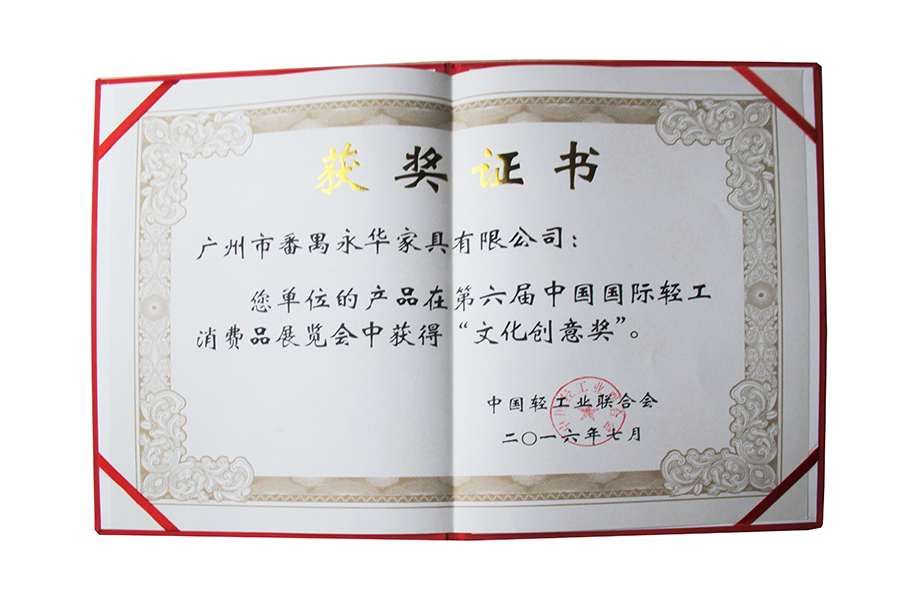 获奖证书
广州市番禺永华家具有限公司：
您单位的产品在第六届中国国际轻工
消费品展览会中获得“文化创意奖”。
中国轻工业联合会
二〇一六年七月